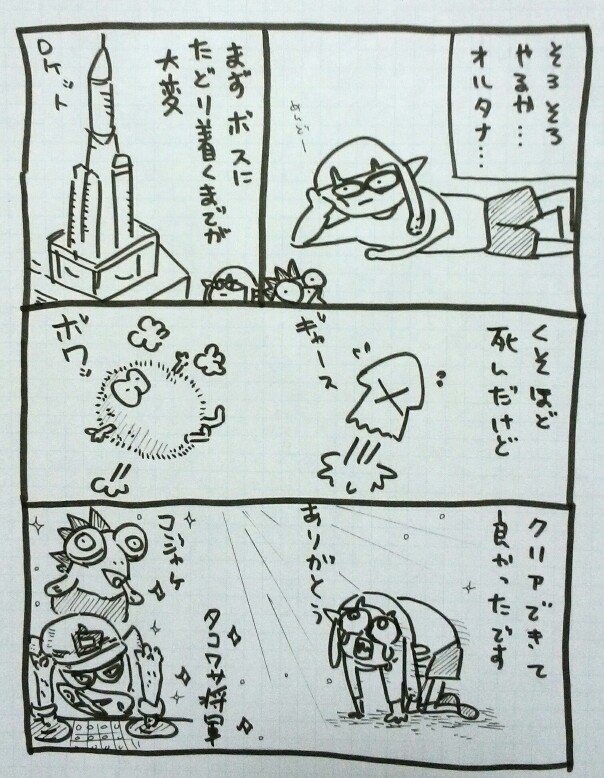 そろそろ
やるか…
オルタナ…
めんどー
まず ボスに
たどり着くまでが
大変
ロケット
くそほど
死んだけど
ギャース
ボワッ
クリアできて
良かったです
ありがとう
タコワサ将軍
コジャケ